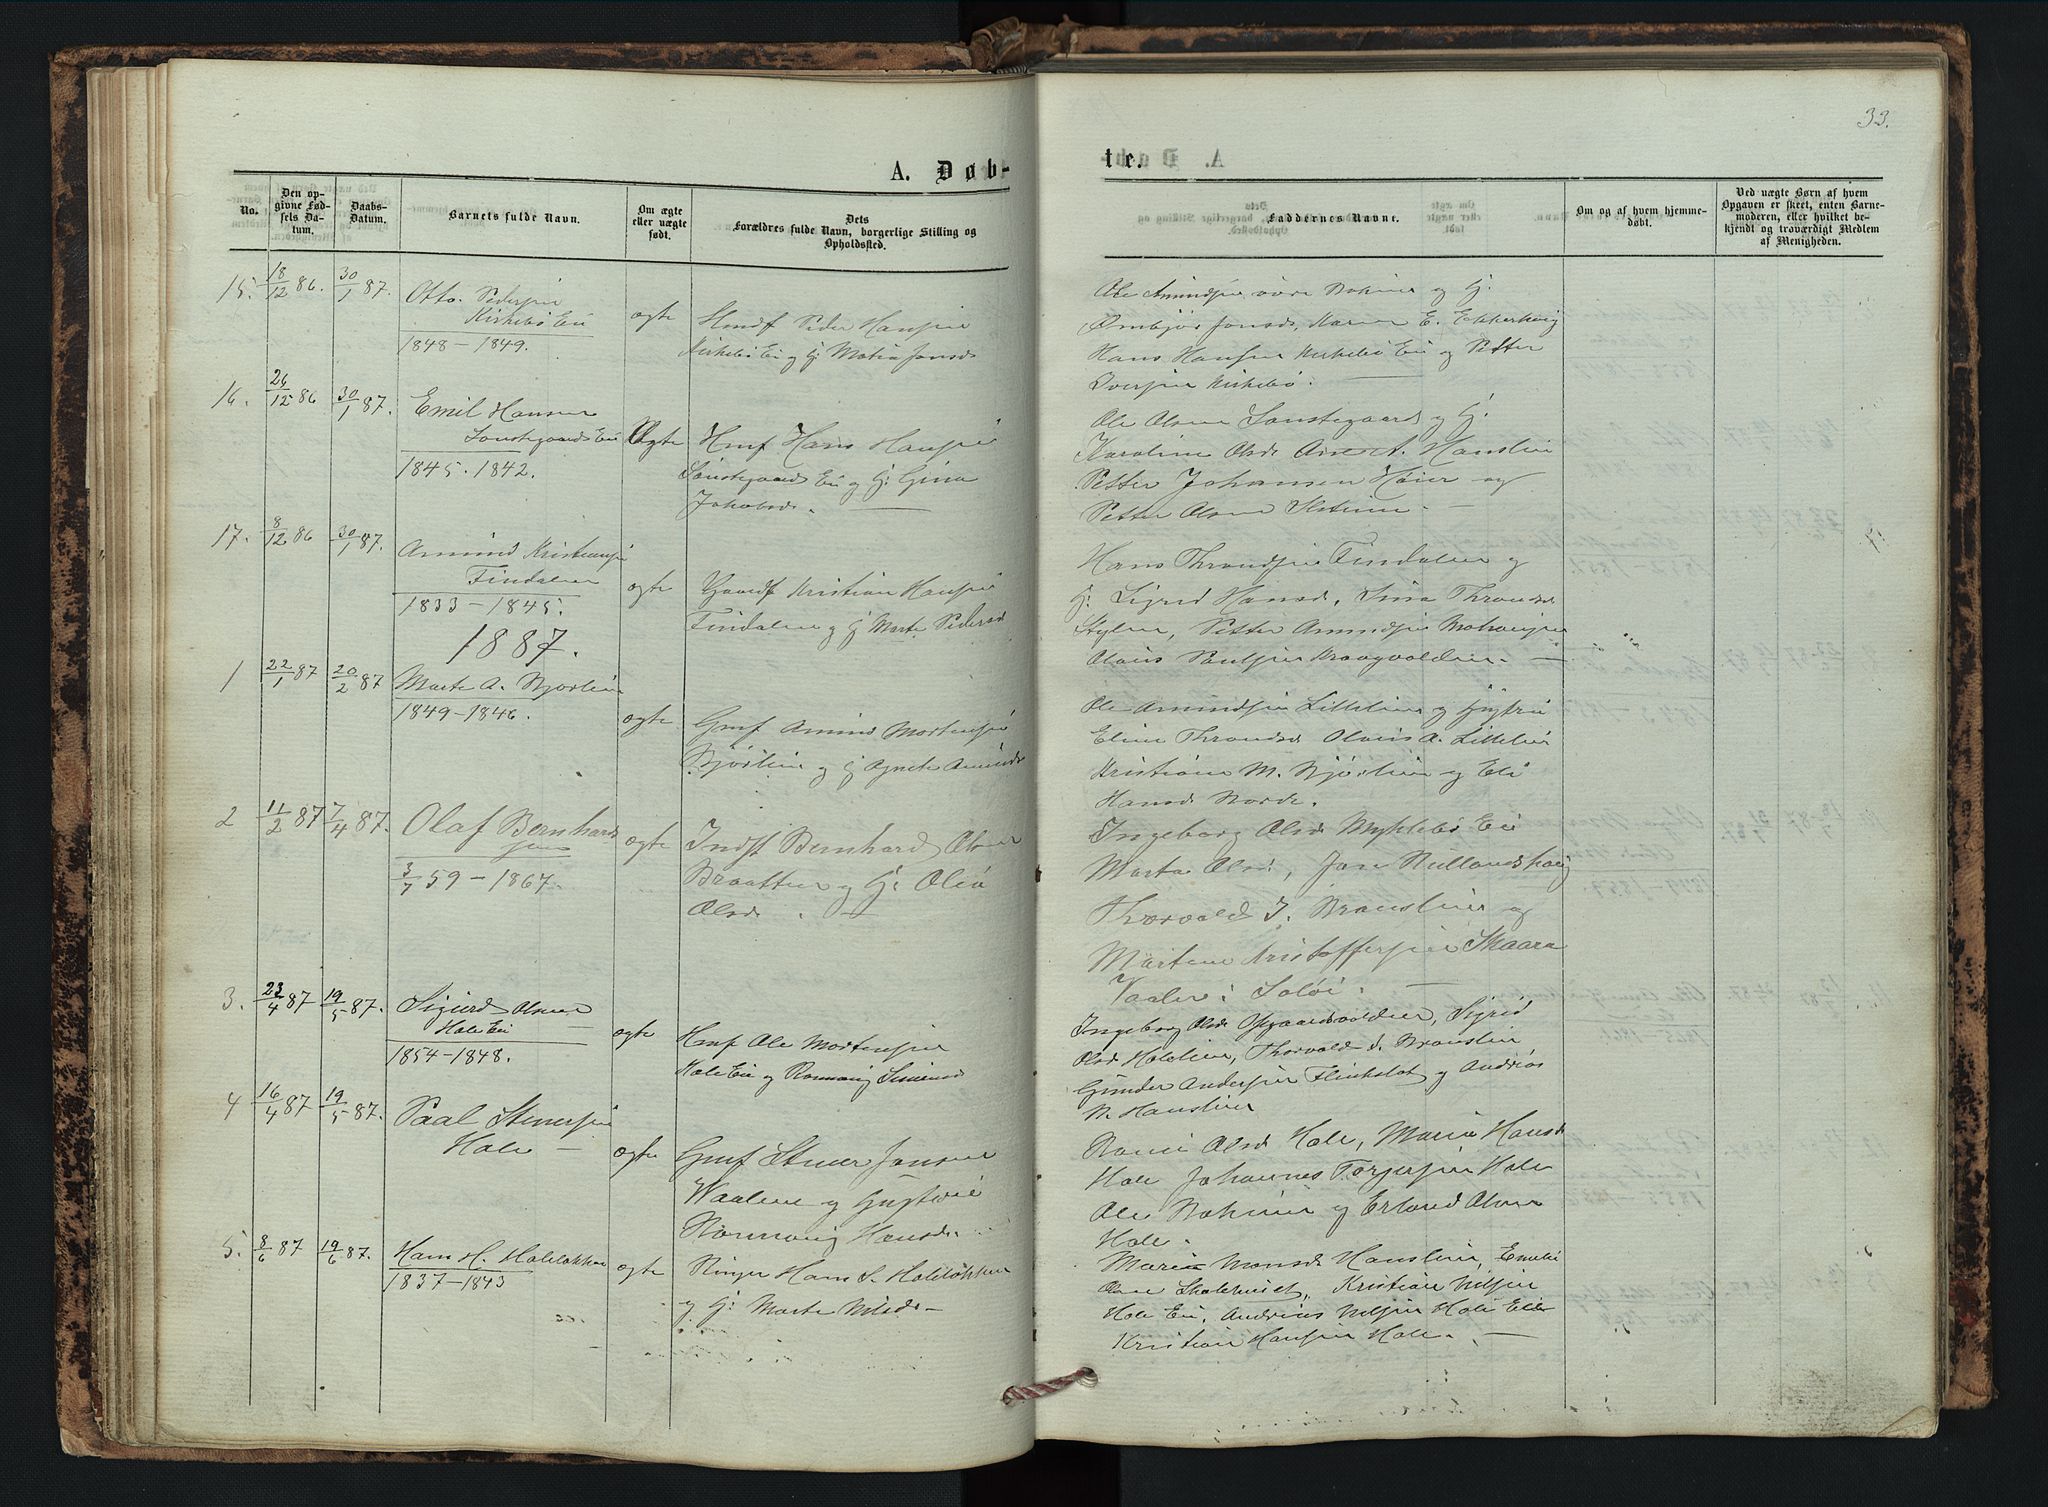 33.
A. Døb-
te.
No.
Den op-
givne Fød-
sels Da-
tum.
Daabs-
Datum.
Barnets fulde Navn.
Om ægte
eller uægte
født.
Dets
Forældres fulde Navn, borgerlige Stilling og
Opholdssted.
Faddernes Navne.
Om og af hvem hjemme-
døbt.
Ved uægte Børn af hvem
Opgaven er skeet, enten Barne-
moderen, eller hvilket be-
kjendt og troværdigt Medlem
af Menigheden.
15. 18/12 86. 30/1 87.
Otto Pedersen
Kirkebö Eie
1848 - 1849.
ægte
Hmdf Peder Hansen
Kirkebö Eie og H: Matia Jonsd
Ole Amundsen Bakine og H.
Jonsd, Karen E. Ekkerhaug
Hans Hansen Kirkebö Eie og Petter
Iversen Kirkebö.
16. 26/12 86 30/1 87.
Emil Hansen
Sönstegaards Eie
1845. 1842.
Ægte
Hmf Hans Hansen
Sönstegaards Eie og H: Gina
Jakobsd.
Ole Olsen Sönstegaard og H:
Karoline Olsd A. Hanslien
Petter Johansen Høier og
Petter Olsen
17. 8/12 86 30/1 87.
Amund Kristiansen
Findalen
1833 - 1845.
ægte
Gaardf Kristian Hansen
Findalen og H Marte Pedersd
Hans Throndsen Findalen og
H: Sigrid Hansd, Sina Throndsd
Petter Amundsen
Olaus Paulsen Kraagvolden. -
1887.
1 22/1 87 20/2 87
Marte A. Bjørlien
1849 - 1846.
ægte
Gmf Amund Mortensen
Bjørlien og H Agnete Amunds
Ole Amundsen Littelien og Hustru
Eline Throndsd Olaus A. Littelien
Kristian M. Bjørlien og Eli
Hansd Borde.
2 11/2 87 7/4 87.
Olaf Bernhard
sen
3/7 59 - 1867.
ægte
Indst Bernhard Olsen
Braatten og H: Olea
Olsd. -
Ingeborg Olsd Myklebö Eie
Marta Olsd, Jan Rullandshaug
Thorvald J. Branslien og
Martin Kristoffersen Skaara
Vaaler i Solöi. -
3. 23/4 87 19/5 87.
Sigurd Olsen
Hole Eie
1854 - 1848.
ægte
Hmf Ole Mortensen
Hole Eie og Rönnaug Simensd
Ingeborg Olsd Opgaardsvolden, Sigrid
Olsd Holelien, Thorvald J. Branslien
Gunder Andersen Flinkslot og Andreas
N. Hanslien
4 16/4 87 19/5 87.
Paal Stenersen
Hole -
ægte
Gmf Stener Jonsen
Waalene og Hustrue
Rönnaug Hansd.
Olsd Hole, Maria Hansd
Hole Johannes Torgersen Hole
Ole Bakine og Erland Olsen
Hole.
5. 8/6 87 19/6 87.
Hans H. Holeløkken
1837 - 1843
ægte
Ringer Hans S. Holeløkken
og H: Marte Nilsd -
Maria Monsd Hanslien, Emelie
Olsen Skolehuset, Kristian Nilsen
Hole Eie, Andreas Nilsen Hole Eie
Kristian Hansen Hole. -